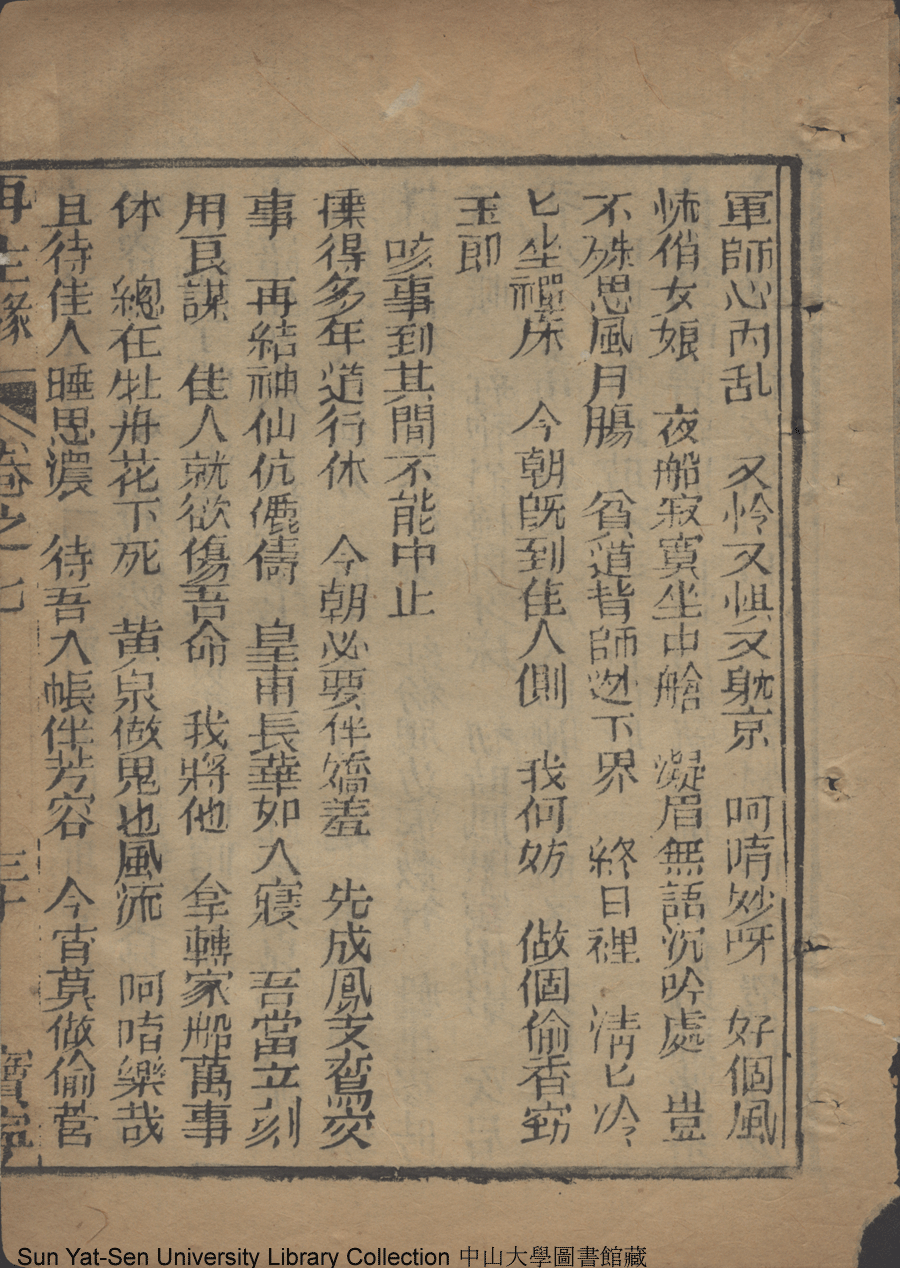 軍師心內乱　又怜又惧又躭京　呵唷妙呀　好個風
㤉俏女娘　夜船寂寞坐中艙　凝眉無語沉吟處　豈
不殊思風月腸　貧道背師迯下界　終日裡　淸匕冷
匕坐禪床　今朝旣到佳人側　我何妨　做個偷香窈
玉郎
咳事到其間不能中止
㯶得多年道行休　今朝必要伴嬌羞　先成鳳友鸞交
事　再結神仙伉儷儔　皇甫長華如入寢　吾當立刻
用良謀　佳人就欲傷吾命　我將他　拿轉家船萬事
休　總在牡丹花下死　黄泉做鬼也風流　呵唷樂哉
且待佳人睡思濃　待吾入帳伴芳容　今宵莫做偷營
再生緣　卷之七　三十　寶寧
Sun Yat-Sen University Library Collection 中山大學圖書館藏